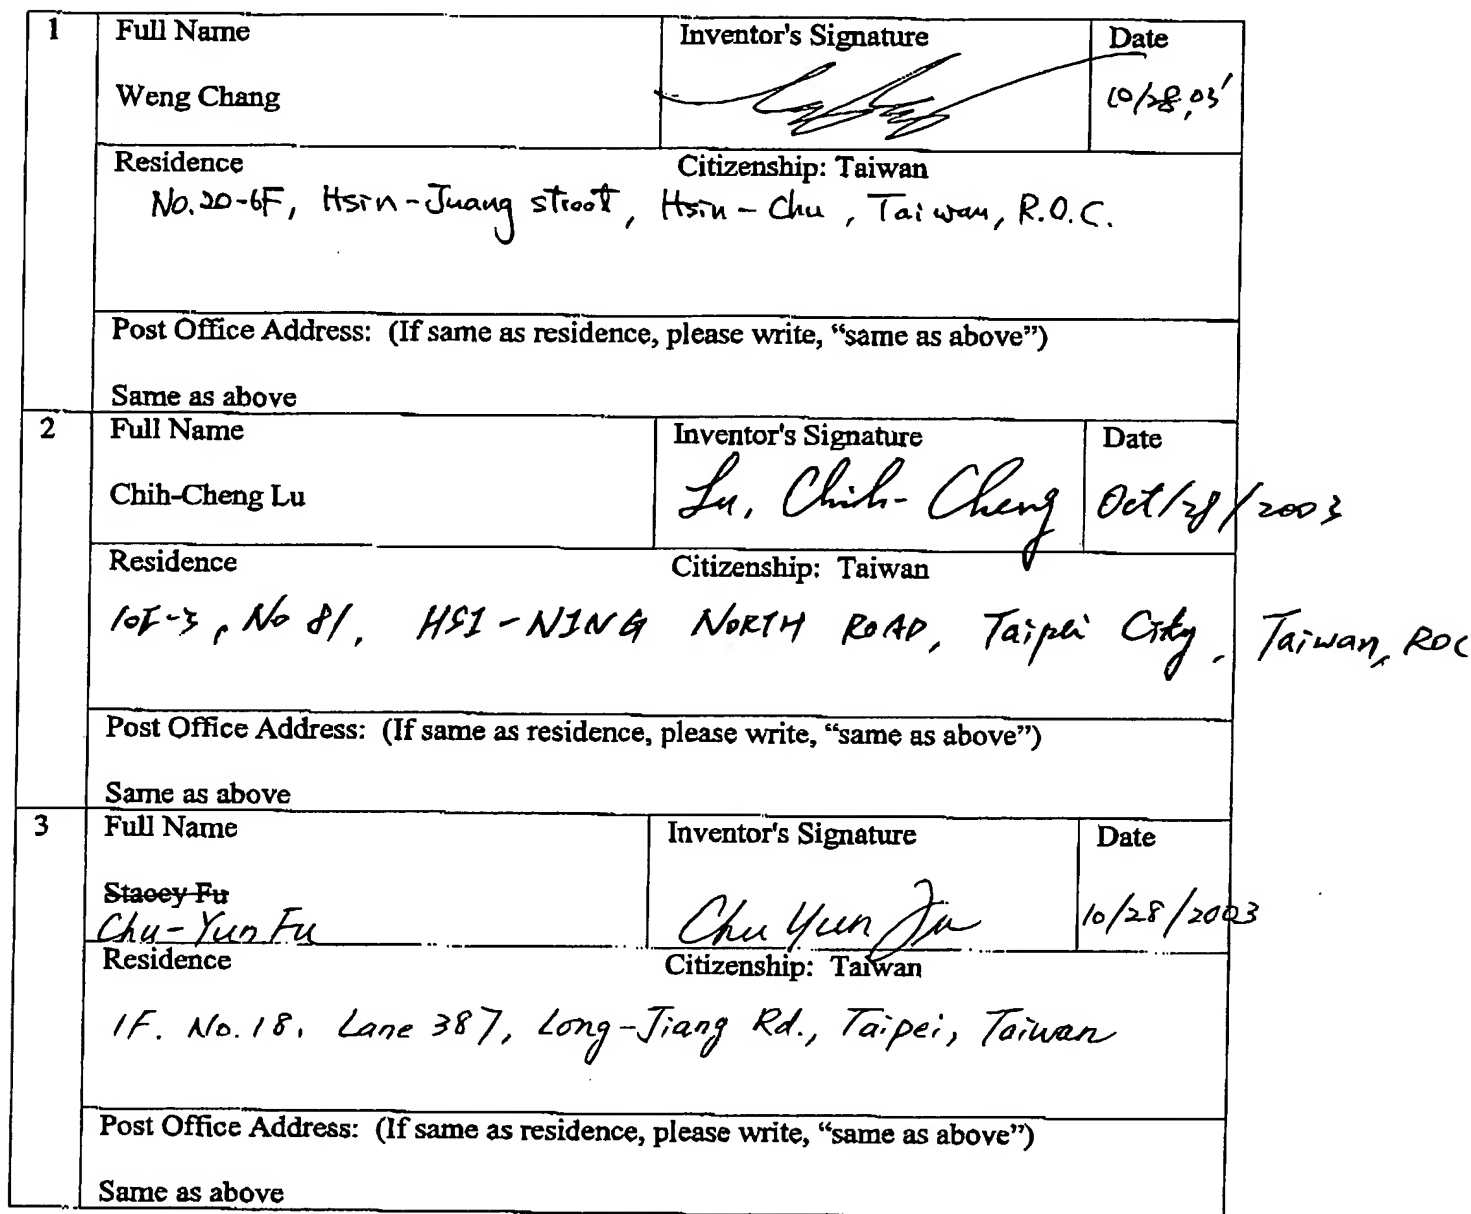 1 Full Name Inventor's Signature Date
Weng Chang 10/28,03'
Residence Citizenship: Taiwan
No.20-6F, Hsin-Juang street, Hsin-Chu, Taiwan, R.O.C.
Post Office Address: (If same as residence, please write, “same as above”)
Same as above
2 Full Name Inventor's Signature Date
Chih-Cheng Lu Lu, Chih-Cheng Oct/28/2003
Residence Citizenship: Taiwan
10F-3, No 81, HSI-NING NORTH ROAD, Taipei City, Taiwan, ROC
Post Office Address: (If same as residence, please write, “same as above”)
Same as above
3 Full Name Inventor's Signature Date
Stacey Fu
Chu-Yun Fu Chu Yun Fu 10/28/2003
Residence Citizenship: Taiwan
1F. No.18. Lane 387, Long-Jiang Rd., Taipei, Taiwan
Post Office Address: (If same as residence, please write, “same as above”)
Same as above